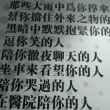 那些大雨中爲你撐傘
幫你擋住外來之物的
黑暗中默默抱緊你的
逗你笑的人
陪你徹夜聊天的人
坐車來看望你的人
陪你哭過的人
在醫院陪你的